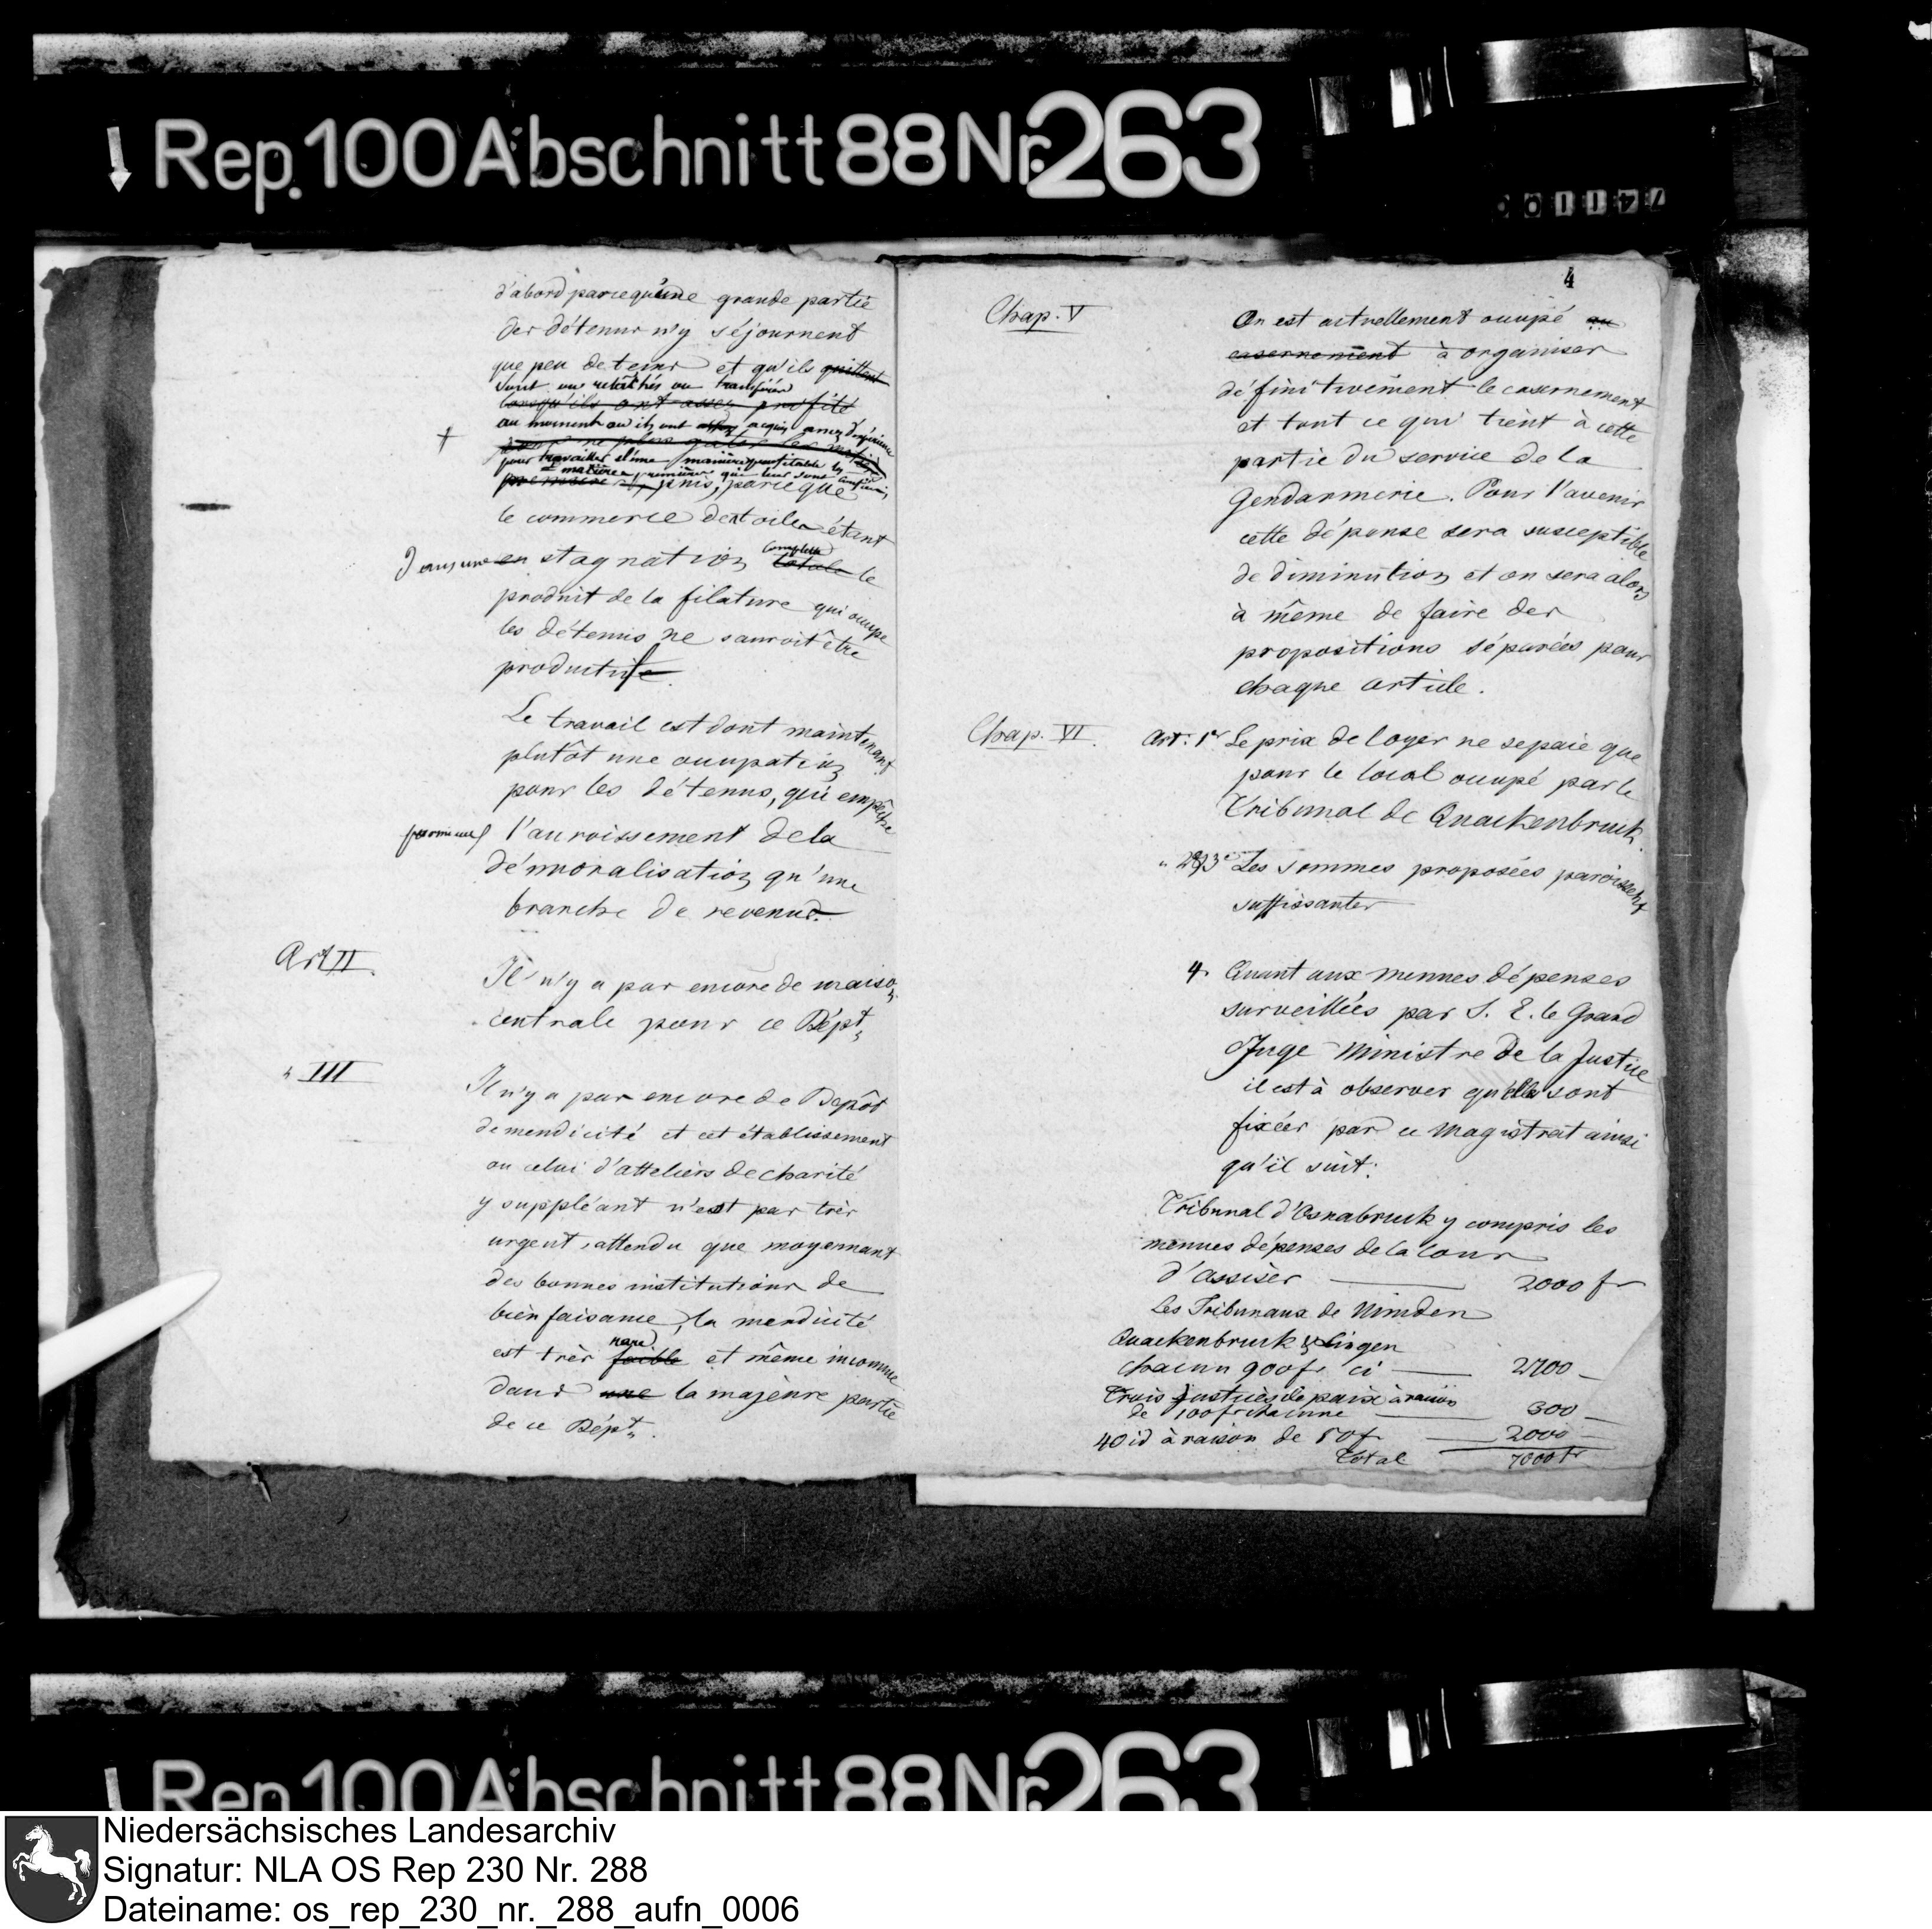 Rep. 100 Abschnitt 88 Nr. 263
d'abord parcequ'une grande partie
des détenus n'y séjournent
que peu de tems et qu'ils quittent
sont ou relachés ou transférés
lorsqu'ils ont assez profité
au moment ou ils ont assez acquis assez d'expérience
pour ne plus gater les matières
pour travailler d'une manière profitable les
matières premières qui leur sont confiées
premières puis, parceque
le commerce des toiles étant
dans une en stagnation complette totale le
produit de la filature qui occupe
les détenus ne sauroit être
productife
Le travail est dont maintenant
plutôt une occupation
pour les détenus, qui empêche
l'accroissement de la
démoralisation qu'une
branche de revenus.
Art II.
Il n'y a pas encore de maison
centrale pour ce Dépt
" III
Il n'y a pas encore de Depôt
de mendicité et cet établissement
ou celui d'atteliers de charité
y suppléant n'est pas très
urgent, attendu que moyennant
des bonnes institutions de
bienfaisance, la mendicité
est très rare faible et même inconnue
dans une la majeure partie
de ce Dépt.
4
Chap. V
On est actuellement occupé au
casernement à organiser
définitivement le casernement
et tout ce qui tient à cette
partie du service de la
Gendarmerie. Pour l'avenir
cette dépense sera susceptible
de diminution et on sera alors
à même de faire des
propositions séparées pour
chaque article.
Chap. VI.
Art. 1er Le prix de loyer ne se paie que
pour le local occupé par le
Tribunal de Quackenbruck.
" 2 & 3e Les sommes proposées paroissent
suffissantes
4. Quant aux menues dépenses
surveillées par S. E. le Grand
Juge Ministre de la Justice
il est à observer qu'elles sont
fixées par ce Magistrat ainsi
qu'il suit:
Tribunal d'Osnabruck y compris les
menues dépenses de la cour
d'assises 2000 fr
Les Tribunaux de Minden
Quackenbruck & Lingen
chacun 900 fr ci 2700
Trois Justices de paix à raison
de 100 fr chacune 300
40 id à raison de 50 f 2000
Total 7000 fr
Rep. 100 Abschnitt 88 Nr. 263
Niedersächsisches Landesarchiv
Signatur: NLA OS Rep 230 Nr. 288
Dateiname: os_rep_230_nr._288_aufn_0006